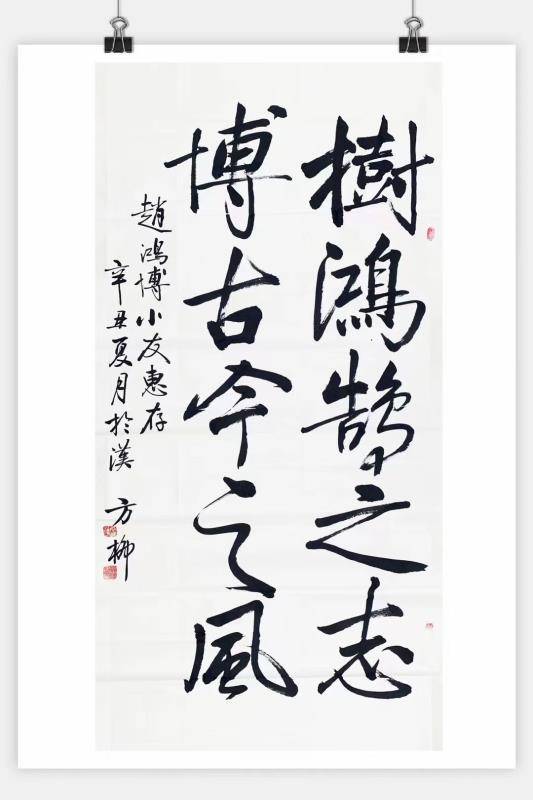 樹鴻鹄之志
博古今之風
趙鴻博小友惠存
辛丑夏月於漢 方柳